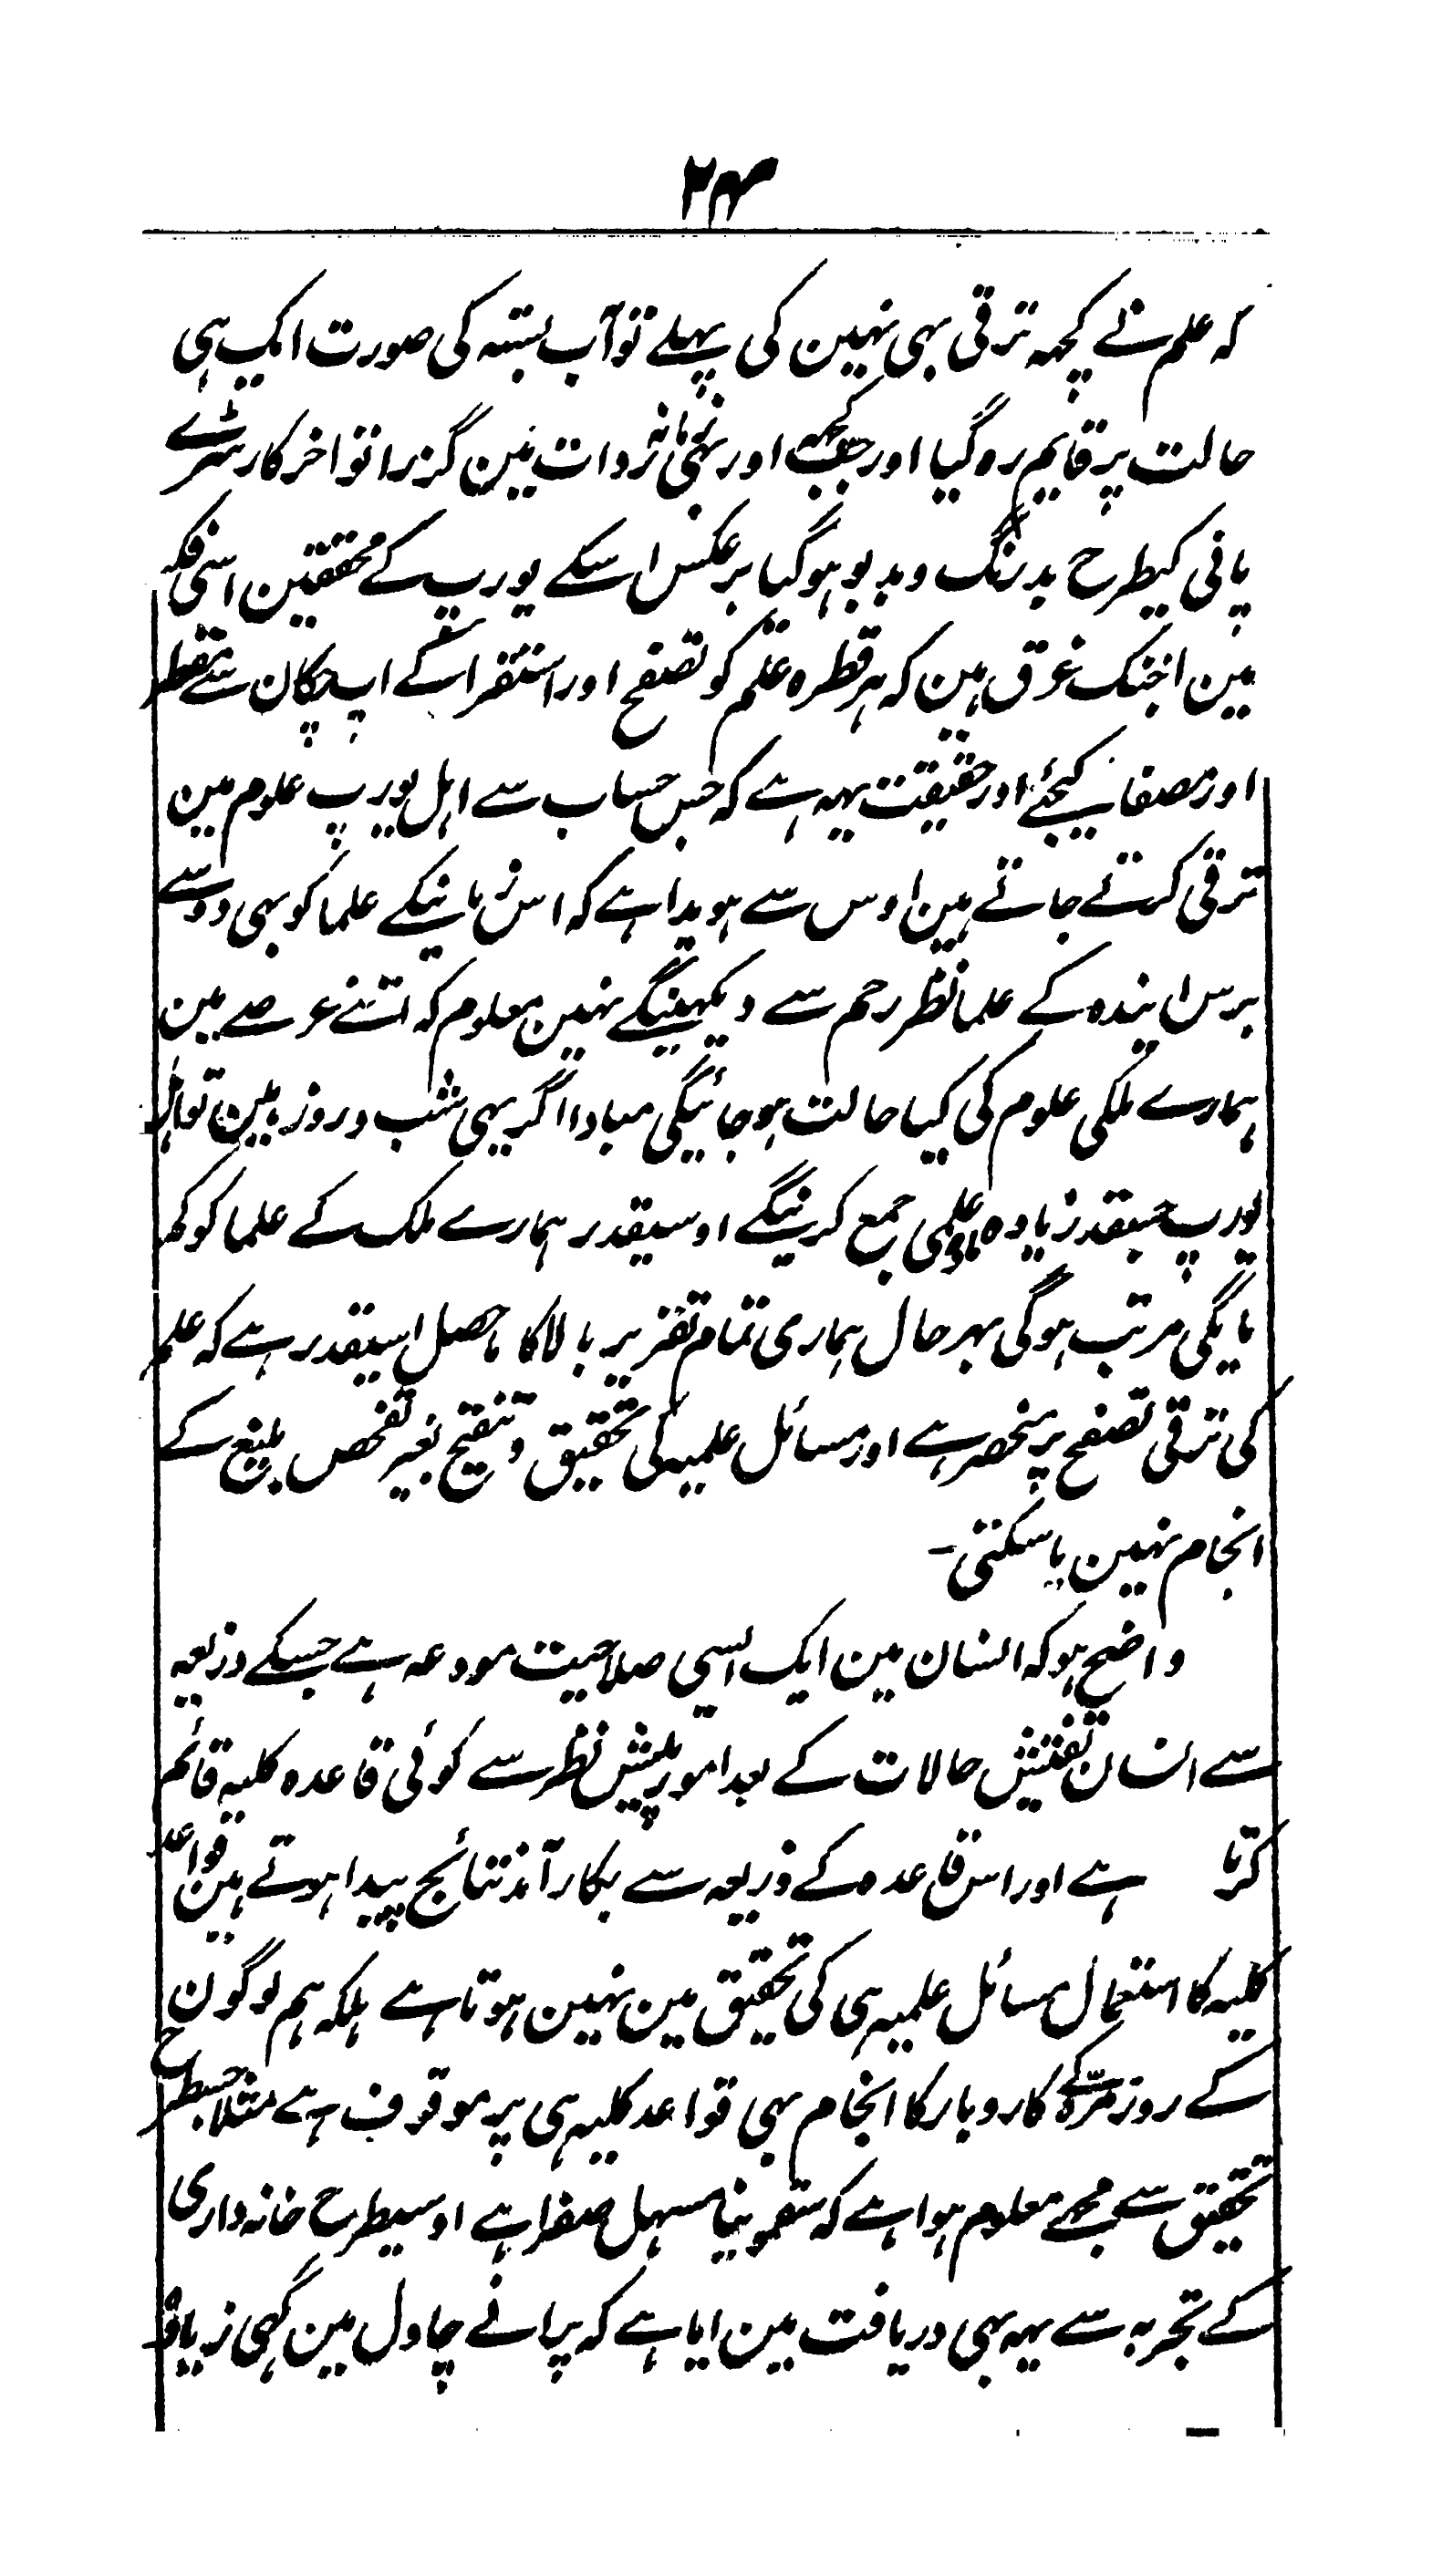 ۲۴
کہ علم نے کچہہ ترقی بہی نہین کی پہلے تو آب بستہ کی صورت ایک ہی
حالت پر قایم رہ گیا اور جب کچہہ اور بہی زمانہ تردات مین گزرا تو اخر کار سڑے
پانی کیطرح بدرنگ و بدبو ہو گیا برعکس اسکے یورپ کے محققین اسی فکر
مین ابتک غرق ہین کہ ہر قطرہ علم کو تصفح اور استقرا کے اب چکان سے مقطر
اور مصفا کیجئے اور حقیقت یہہ ہے کہ جس حساب سے اہل یورپ علوم مین
ترقی کرتے جاتے ہین اوس سے ہویدا ہے کہ اس زمانیکے علما کو بہی دوسے
برس ایندہ کے علما نظر رحم سے دیکہینگے نہین معلوم کہ اتنے عرصے مین
ہمارے ملکی علوم کی کیا حالت ہو جائیگی مبادا اگر یہی شب و روز ہین تو اہل
یورپ جسقدر زیادہ مواد علمی جمع کرینگے اوسیقدر ہمارے ملک کے علما کو کم
مایگی مرتب ہوگی بہر حال ہماری تمام تقریر بالا کا ماحصل اسیقدر ہے کہ علم
کی ترقی تصفح پر منحصر ہے اور مسائل علمیہ کی تحقیق و تنقیح بغیر تفحص بلیغ کے
انجام نہین پا سکتی۔
واضح ہو کہ انسان مین ایک ایسی صلاحیت مودعہ ہے جسکے ذریعہ
سے انسان تفتیش حالات کے بعد امور پیش نظر سے کوئی قاعدہ کلیہ قائم
کرتا ہے اور اس قاعدہ کے ذریعہ سے بکار آمد نتائج پیدا ہوتے ہین قواعد
کلیہ کا استعمال مسائل علمیہ ہی کی تحقیق مین نہین ہوتا ہے بلکہ ہم لوگون
کے روز مرّہ کے کاروبار کا انجام بہی قواعد کلیہ ہی پر موقوف ہے مثلا جسطرح
تحقیق سے مجہے معلوم ہوا ہے کہ سقمونیا مسہل صفرا ہے اوسیطرح خانہ داری
کے تجربہ سے یہہ بہی دریافت مین ایا ہے کہ پرانے چاول مین گہی زیادہ